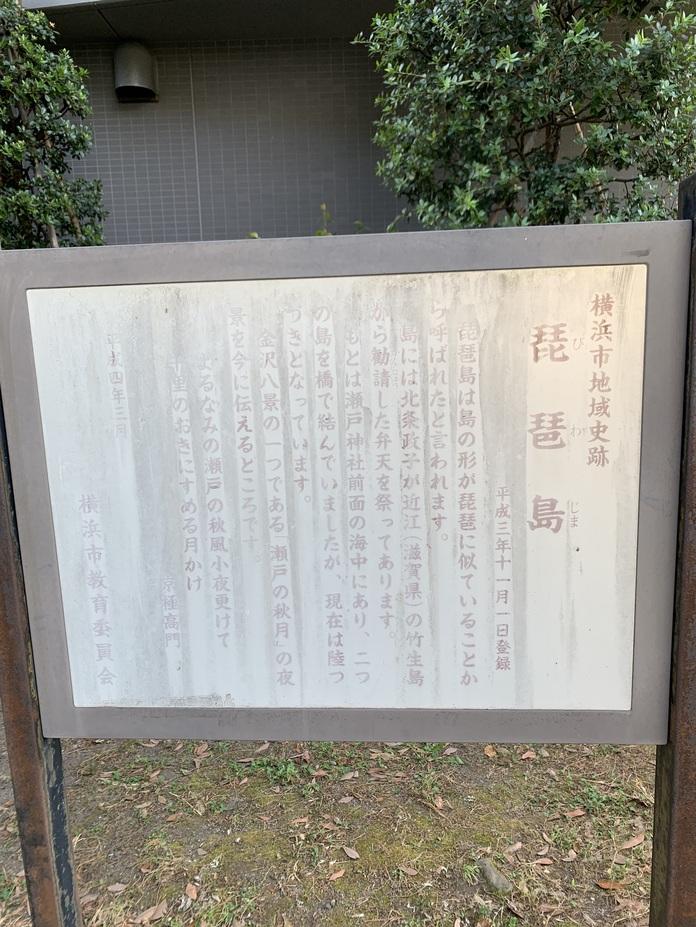 横浜市地域史跡
琵琶島
びわじま
平成三年十一月一日登録
琵琶島は島の形が琵琶に似ていることか
ら呼ばれたと言われます。
島には北条政子が近江(滋賀県)の竹生島
から勧請した弁天を祭ってあります。
もとは瀬戸神社前面の海中にあり、二つ
の島を橋で結んでいましたが、現在は陸つ
づきとなっています。
金沢八景の一つである「瀬戸の秋月」の夜
景を今に伝えるところです。
よるなみの瀬戸の秋風小夜更けて
千里のおきにすめる月かげ
京極高門
平成四年三月
横浜市教育委員会